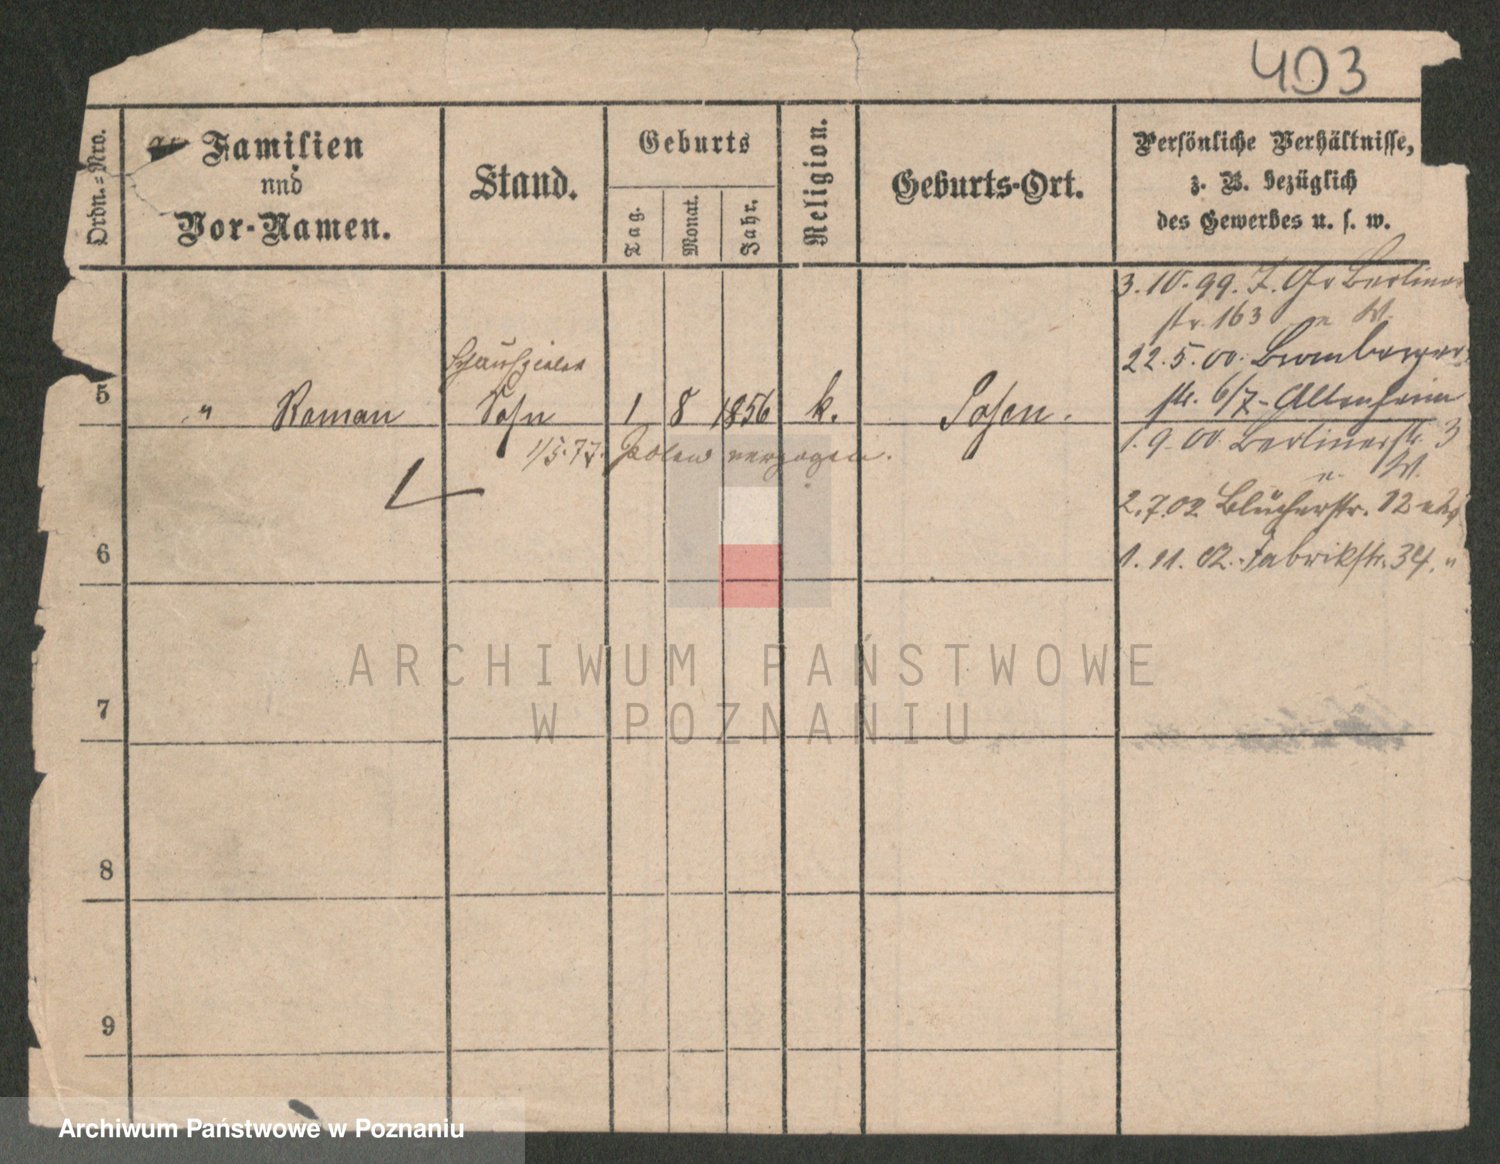 403
Ordn.=Nro.
Familien
und
Vor-Namen.
Stand.
Geburts
Tag.
Monat.
Jahr.
Religion.
Geburts-Ort.
Persönliche Verhältnisse,
z. B. bezüglich
des Gewerbes u. s. w.
3. 10. 99. Gr Berliner
str. 163 W.
22. 5. 00. Bromberger
str. 6/7 - Altenheim
Schauspieler
5 " Roman Sohn 1 8 1856 k. Posen.
1. 9. 00 Berlinerstr. 3
W.
1/5. 77. Polen verzogen.
2. 7. 02 Blücherstr. 12
6
1. 11. 02. Fabrikstr. 34. "
7
8
9
ARCHIWUM PAŃSTWOWE
W POZNANIU
Archiwum Państwowe w Poznaniu